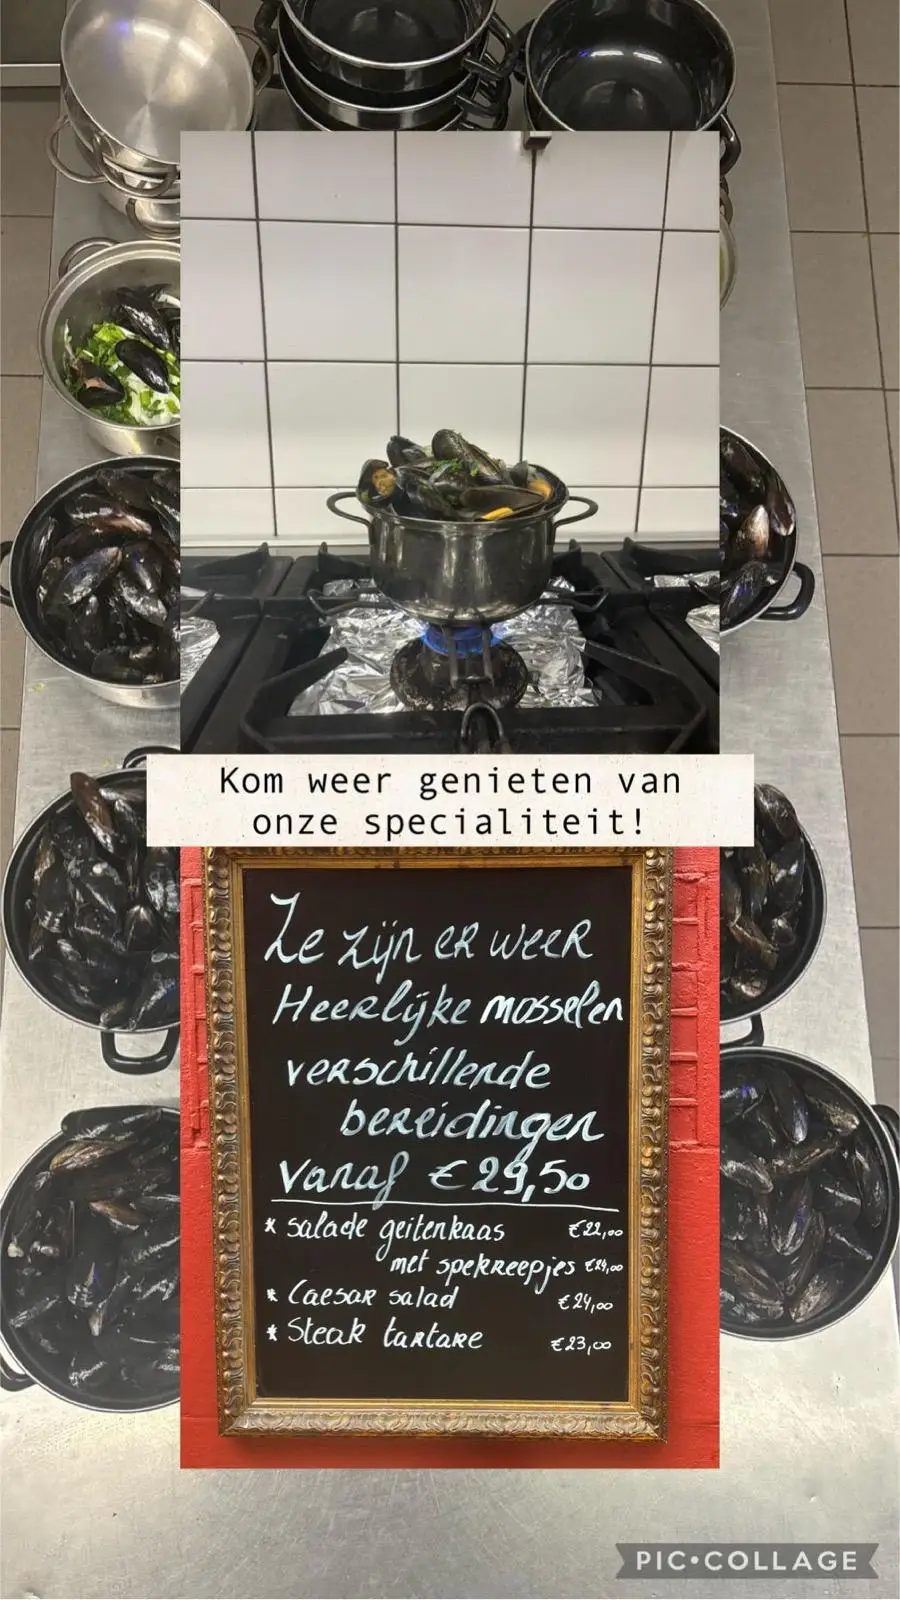 Kom weer genieten van
onze specialiteit!
Ze zijn er weer
Heerlijke mosselen
verschillende
bereidingen
vanaf € 29,50
* salade geitenkaas €22,00
met spekreepjes €24,00
* Caesar salad €24,00
* Steak tartare €23,00
PIC•COLLAGE